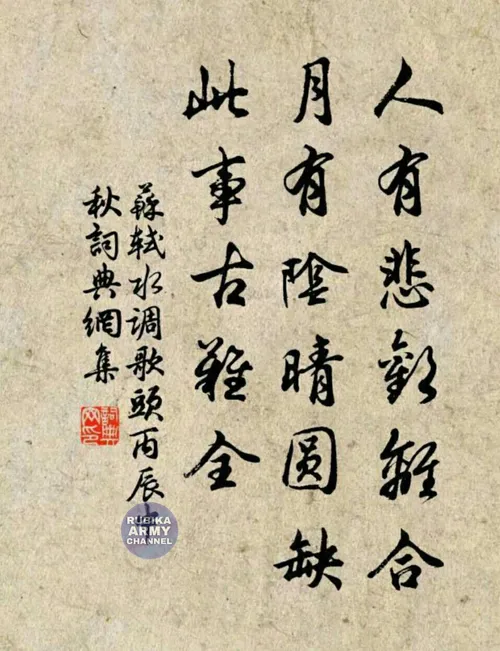 人有悲歡離合
月有陰晴圆缺
此事古難全
蘇軾水调歌頭丙辰中
秋詞典網集
RUBIKA
ARMY
CHANNEL